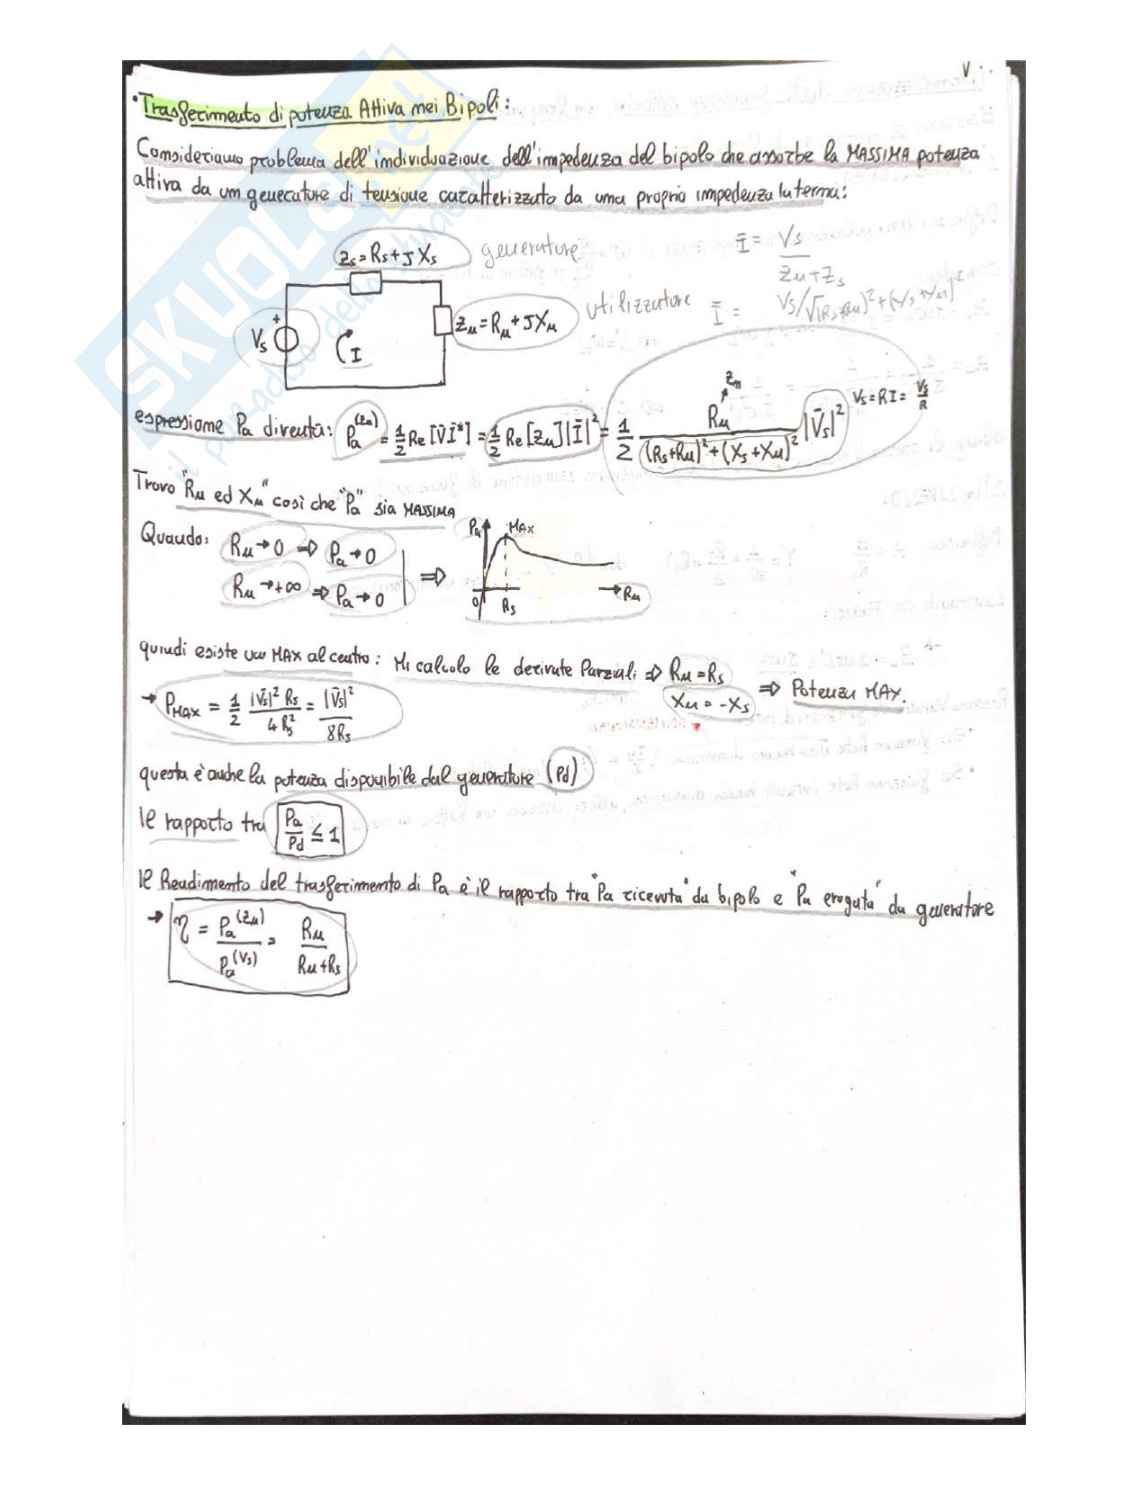 • Trasferimento di potenza Attiva nei Bipoli:
Consideriamo problema dell'individuazione dell'impedenza del bipolo che assorbe la MASSIMA potenza
attiva da un generatore di tensione caratterizzato da una propria impedenza interna:
Zs = Rs + J Xs generatore
Ī = Vs / Zu + Zs
Zu = Ru + J Xu utilizzatore
Ī = Vs/√(Rs+Ru)² + (Xs+Xu)²
Vs + I
espressione Pa diventa: Pa^(Zu) = 1/2 Re[V̄ Ī*] = 1/2 Re[Zu]|Ī|² = 1/2 Ru / (Rs+Ru)² + (Xs+Xu)² |V̄s|² Zu Vs = RI = Vs/R
Trovo "Ru ed Xu" così che "Pa" sia MASSIMA
Quando: Ru → 0 ⇒ Pa → 0
Ru → +∞ ⇒ Pa → 0 ⇒
Pa MAX 0 Rs Ru
quindi esiste un MAX al centro: Mi calcolo le derivate Parziali ⇒ Ru = Rs
Xu = -Xs ⇒ Potenza MAX.
→ PMAX = 1/2 |V̄s|² Rs / 4 Rs² = |V̄s|² / 8Rs
questa è anche la potenza disponibile dal generatore (Pd)
il rapporto tra Pa/Pd ≤ 1
il Rendimento del trasferimento di Pa è il rapporto tra "Pa ricevuta" da bipolo e "Pa erogata" da generatore
→ η = Pa^(Zu) / Pa^(Vs) = Ru / Ru + Rs
SKUOLA.net
il paradiso dello studente